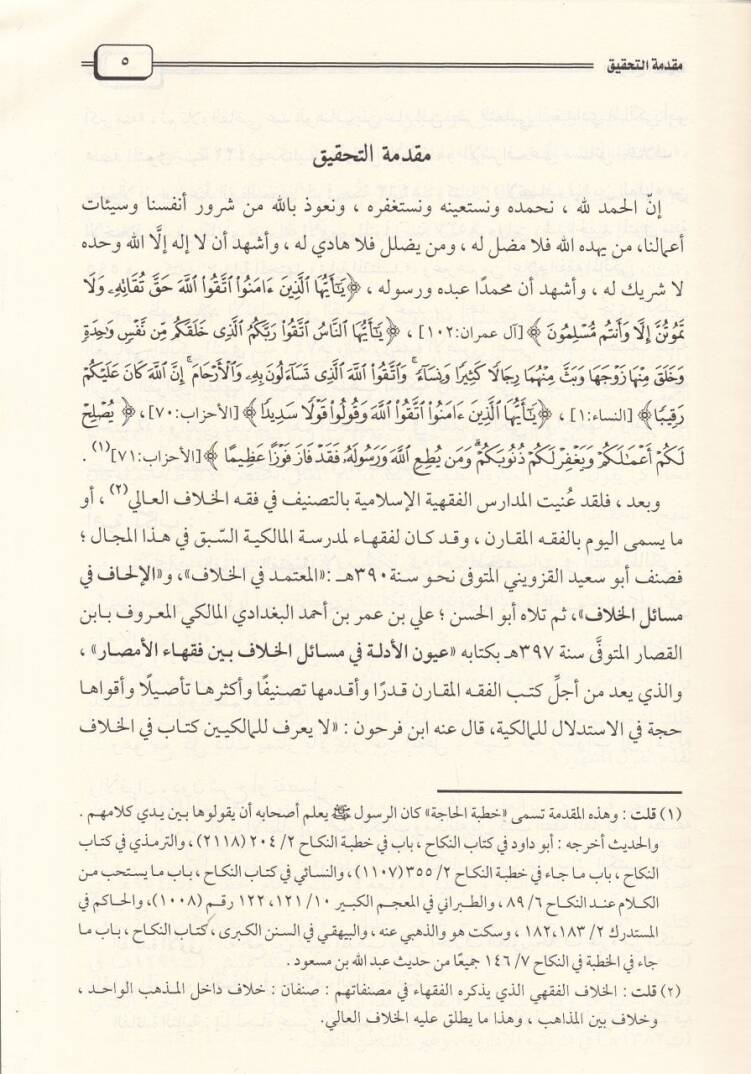 مقدمة التحقيق
٥
مقدمة التحقيق
إنّ الحمد لله ، نحمده ونستعينه ونستغفره ، ونعوذ بالله من شرور أنفسنا وسيئات
أعمالنا، من يهده الله فلا مضل له ، ومن يضلل فلا هادي له ، وأشهد أن لا إله إلَّا الله وحده
لا شريك له ، وأشهد أن محمدًا عبده ورسوله ، ﴿يَٰٓأَيُّهَا ٱلَّذِينَ ءَامَنُوا۟ ٱتَّقُوا۟ ٱللَّهَ حَقَّ تُقَاتِهِۦ وَلَا
تَمُوتُنَّ إِلَّا وَأَنتُم مُّسْلِمُونَ ﴾[آل عمران:١٠٢] ، ﴿يَٰٓأَيُّهَا ٱلنَّاسُ ٱتَّقُوا۟ رَبَّكُمُ ٱلَّذِى خَلَقَكُم مِّن نَّفْسٍ وَٰحِدَةٍ
وَخَلَقَ مِنْهَا زَوْجَهَا وَبَثَّ مِنْهُمَا رِجَالًا كَثِيرًا وَنِسَآءً ۚ وَٱتَّقُوا۟ ٱللَّهَ ٱلَّذِى تَسَآءَلُونَ بِهِۦ وَٱلْأَرْحَامَ ۚ إِنَّ ٱللَّهَ كَانَ عَلَيْكُمْ
رَقِيبًا﴾ [النساء:١] ، ﴿يَٰٓأَيُّهَا ٱلَّذِينَ ءَامَنُوا۟ ٱتَّقُوا۟ ٱللَّهَ وَقُولُوا۟ قَوْلًا سَدِيدًا﴾ [الأحزاب:٧٠]، ﴿ يُصْلِحْ
لَكُمْ أَعْمَٰلَكُمْ وَيَغْفِرْ لَكُمْ ذُنُوبَكُمْ ۗ وَمَن يُطِعِ ٱللَّهَ وَرَسُولَهُۥ فَقَدْ فَازَ فَوْزًا عَظِيمًا ﴾[الأحزاب:٧١](١) .
وبعد ، فلقد عُنيت المدارس الفقهية الإسلامية بالتصنيف في فقه الخلاف العالي(٢) ، أو
ما يسمى اليوم بالفقه المقارن ، وقد كان لفقهاء لمدرسة المالكية السّبق في هذا المجال ؛
فصنف أبو سعيد القزويني المتوفى نحو سنة ٣٩٠هـ :«المعتمد في الخلاف»، و«الإلحاف في
مسائل الخلاف»، ثم تلاه أبو الحسن ؛ علي بن عمر بن أحمد البغدادي المالكي المعروف بابن
القصار المتوفَّى سنة ٣٩٧هـ بكتابه «عيون الأدلة في مسائل الخلاف بين فقهاء الأمصار» ،
والذي يعد من أجلِّ كتب الفقه المقارن قدرًا وأقدمها تصنيفًا وأكثرها تأصيلًا وأقواها
حجة في الاستدلال للمالكية، قال عنه ابن فرحون : «لا يعرف للمالكيين كتاب في الخلاف
(١) قلت : وهذه المقدمة تسمى «خطبة الحاجة» كان الرسول ﷺ يعلم أصحابه أن يقولوها بين يدي كلامهم .
والحديث أخرجه : أبو داود في كتاب النكاح ، باب في خطبة النكاح ٢/ ٢٠٤ (٢١١٨)، والترمذي في كتاب
النكاح ، باب ما جاء في خطبة النكاح ٢/ ٣٥٥ (١١٠٧)، والنسائي في كتاب النكاح ، باب ما يستحب من
الكلام عند النكاح ٦/ ٨٩ ، والطبراني في المعجم الكبير ١٠/ ١٢١، ١٢٢ رقم (١٠٠٨)، والحاكم في
المستدرك ٢/ ١٨٢،١٨٣ ، وسكت هو والذهبي عنه ، والبيهقي في السنن الكبرى ، كتاب النكاح ، باب ما
جاء في الخطبة في النكاح ٧/ ١٤٦ جميعًا من حديث عبد الله بن مسعود .
(٢) قلت : الخلاف الفقهي الذي يذكره الفقهاء في مصنفاتهم : صنفان : خلاف داخل المذهب الواحد ،
وخلاف بين المذاهب ، وهذا ما يطلق عليه الخلاف العالي.